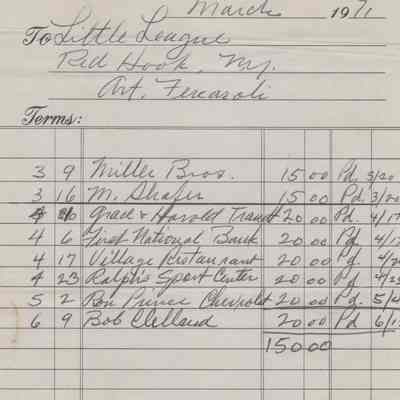 March 1971
To Little League
Red Hook, Ny.
Art. Fercaroli
Terms:
3 9 Miller Bros. 15 00 Pd. 3/20
3 16 M. Shafer 15 00 Pd. 3/20
4 Grad & Harold Traudt 20 00 Pd. 4/17
4 6 First National Bank 20.00 Pd 4/17
4 17 Village Restaurant 20 00 Pd. 4/2
4 23 Ralph's Sport Center 20 00 Pd 4/25
5 2 Ron Prince Chevrolet 20 00 Pd. 5/4
6 9 Bob Clelland 20.00 Pd 6/1
150 00